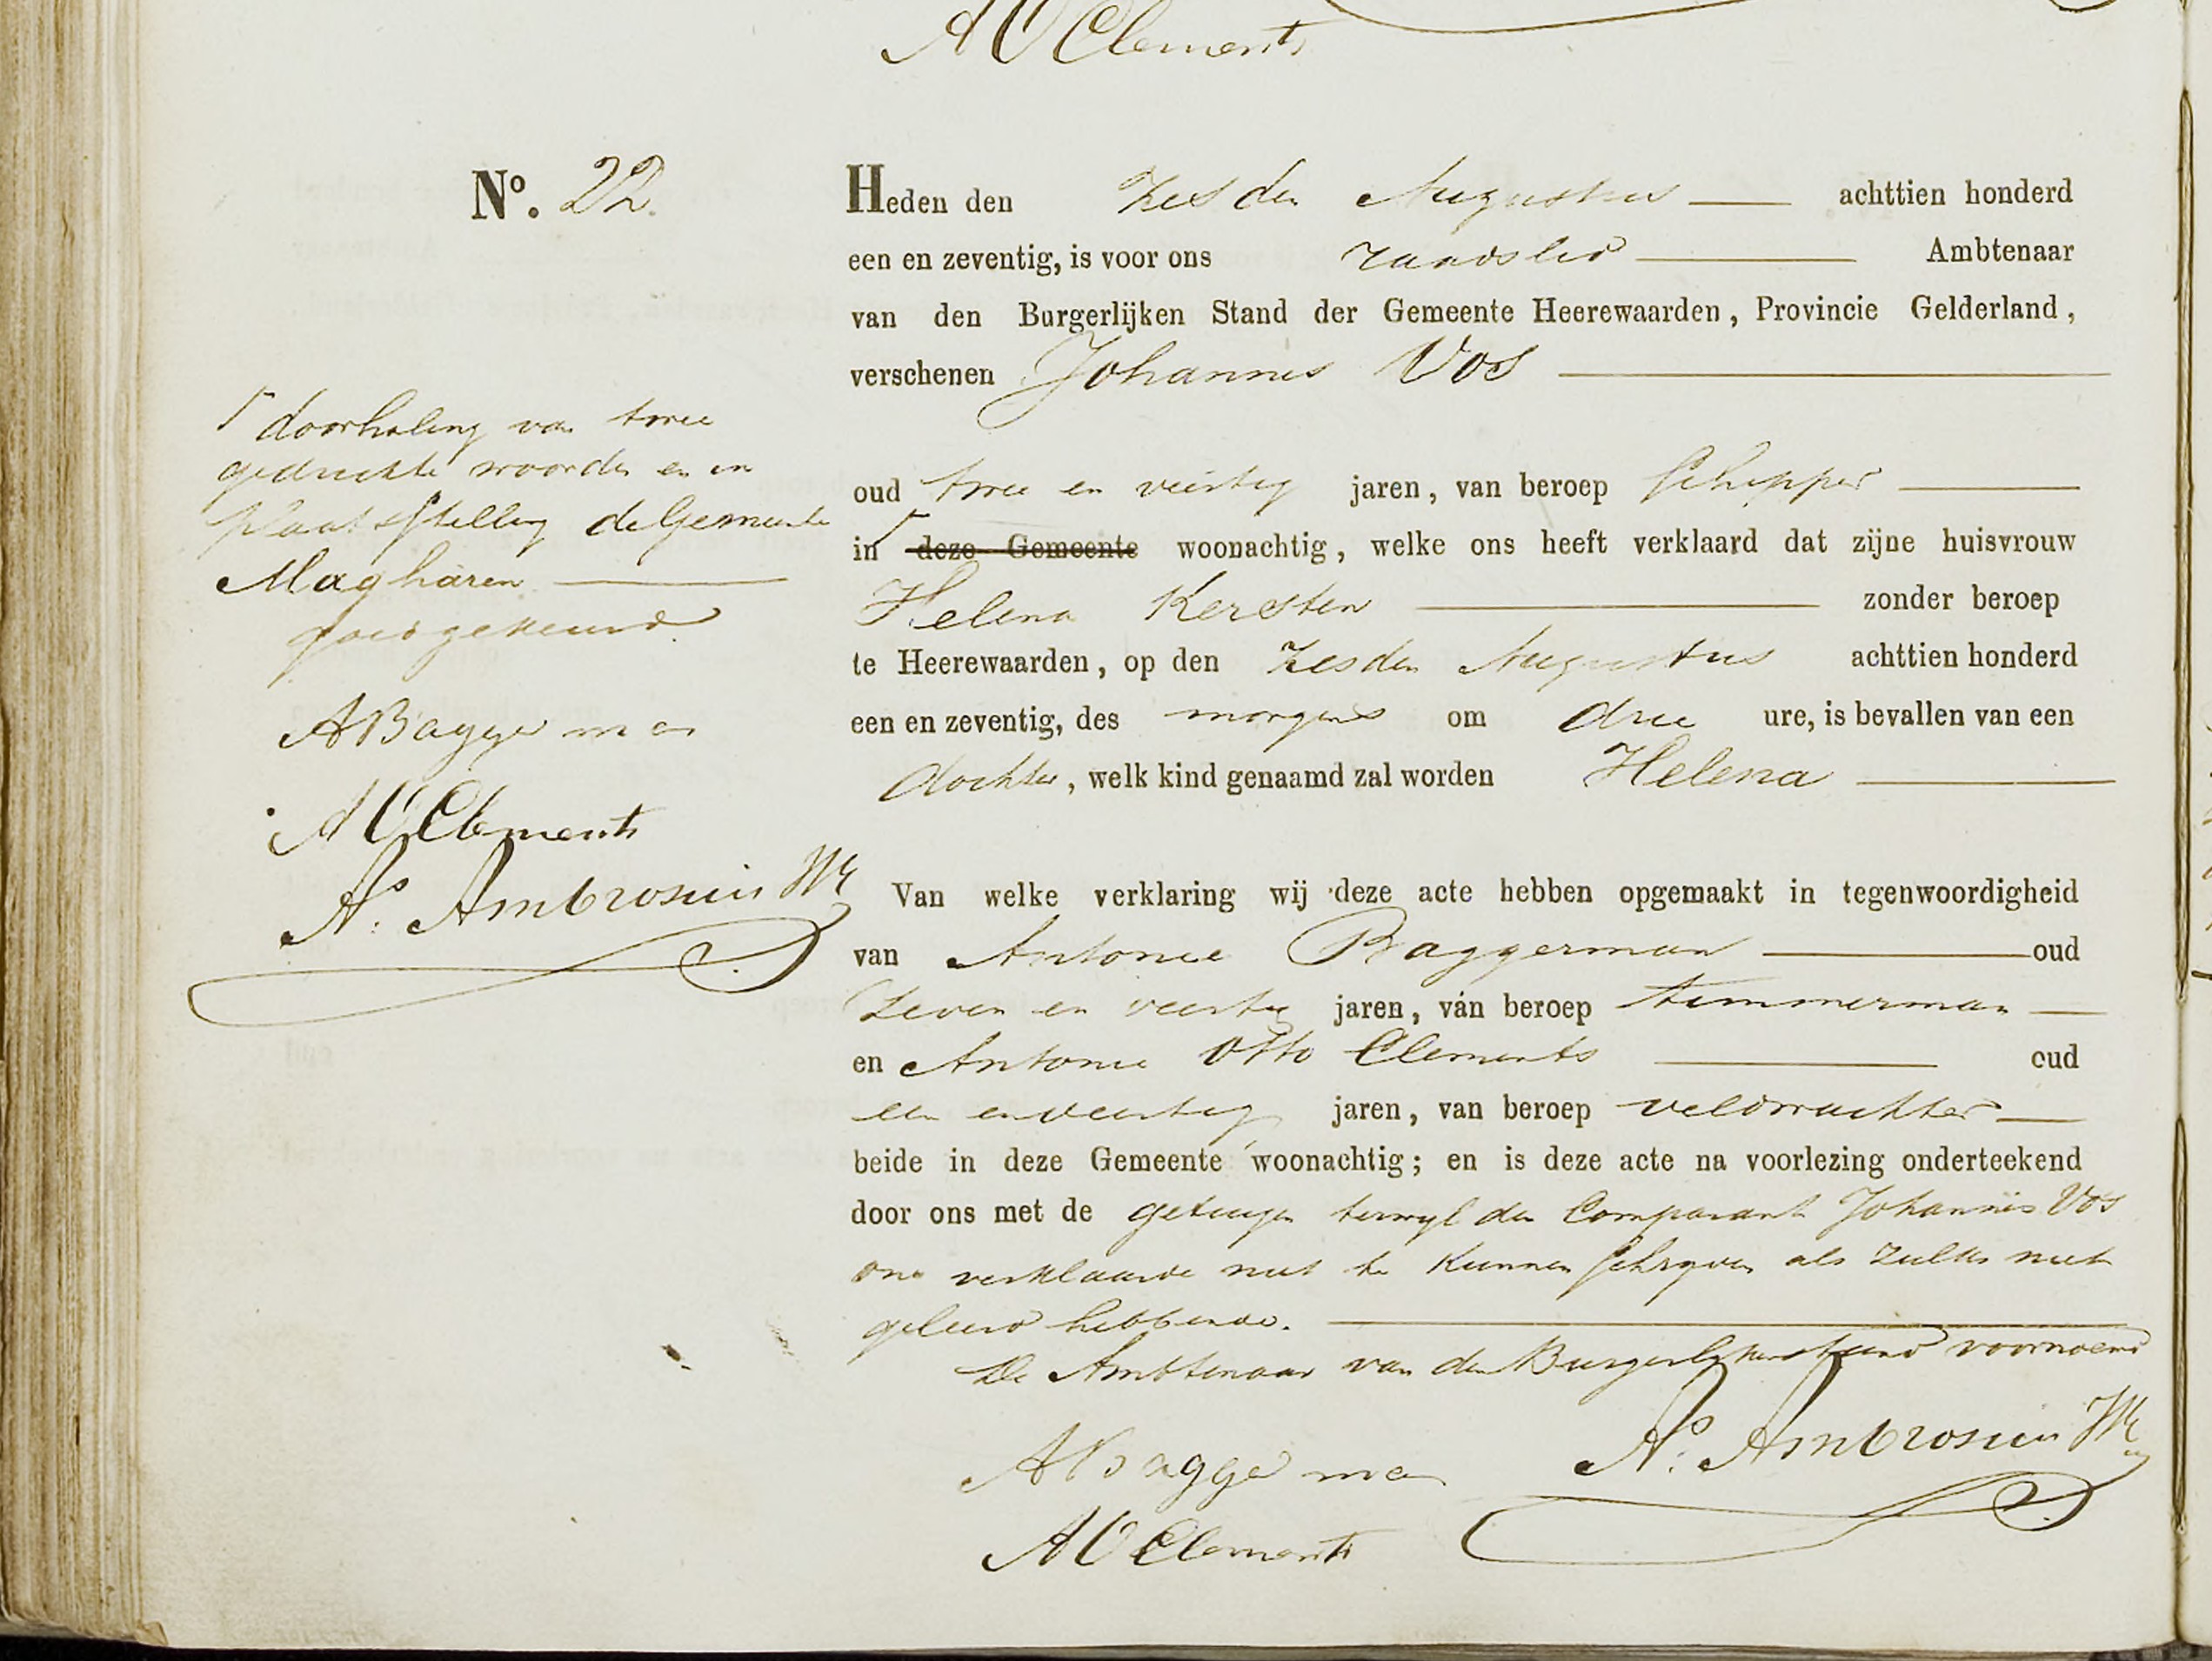 AO Clements
No. 22.
Heden den Zesden Augustus achttien honderd
een en zeventig, is voor ons raadslid Ambtenaar
van den Burgerlijken Stand der Gemeente Heerewaarden, Provincie Gelderland,
verschenen Johannes Vos
oud twee en veertig jaren, van beroep Schipper
in deze Gemeente woonachtig, welke ons heeft verklaard dat zijne huisvrouw
Helena Kersten zonder beroep
te Heerewaarden, op den Zesden Augustus achttien honderd
een en zeventig, des morgens om drie ure, is bevallen van een
dochter, welk kind genaamd zal worden Helena
doorhaling van twee
gedrukte woorden en in
plaatsstelling de Gemeente
Magharen
goedgekeurd
ABaggerman
AO Clements
Ns. Ambrosius Wz
Van welke verklaring wij deze acte hebben opgemaakt in tegenwoordigheid
van Antonie Baggerman oud
Zeven en veertig jaren, van beroep timmerman
en Antonie Otto Clements oud
een en veertig jaren, van beroep veldwachter
beide in deze Gemeente woonachtig; en is deze acte na voorlezing onderteekend
door ons met de getuigen terwyl den Comparant Johannes Vos
ons verklaarde niet te kunnen Schryven als zulks niet
geleerd hebbende.
De Ambtenaar van den Burgerlyken stand voornoemd
ABaggerman
Ns. Ambrosius Wz
AO Clements